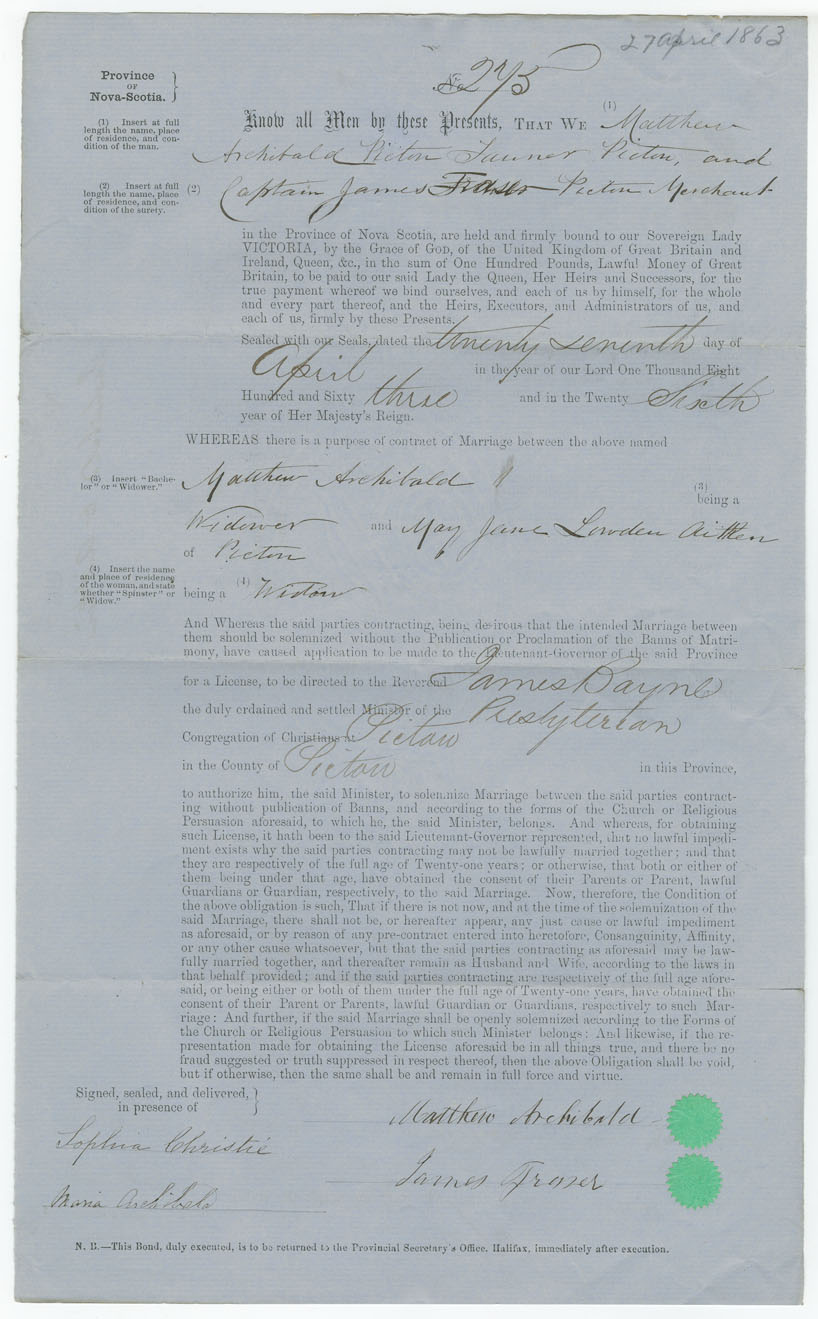 27 April 1863
Province
OF
Nova-Scotia.
No. 275
(1) Insert at full
length the name, place
of residence, and con-
dition of the man.
Know all Men by these Presents, THAT WE (1) Matthew
Archibald Picton Tanner Picton, and
(2) Insert at full
length the name, place
of residence, and con-
dition of the surety.
(2) Captain James Fraser Picton Merchant
in the Province of Nova Scotia, are held and firmly bound to our Sovereign Lady
VICTORIA, by the Grace of GOD, of the United Kingdom of Great Britain and
Ireland, Queen, &c., in the sum of One Hundred Pounds, Lawful Money of Great
Britain, to be paid to our said Lady the Queen, Her Heirs and Successors, for the
true payment whereof we bind ourselves, and each of us by himself, for the whole
and every part thereof, and the Heirs, Executors, and Administrators of us, and
each of us, firmly by these Presents.
Sealed with our Seals, dated the twenty seventh day of
April in the year of our Lord One Thousand Eight
Hundred and Sixty three and in the Twenty Sixth
year of Her Majesty's Reign.
WHEREAS there is a purpose of contract of Marriage between the above named
(3) Insert "Bache-
lor" or "Widower."
Matthew Archibald " (3)
being a
Widower and May Jane Lowden Aitken
of Picton
(4) Insert the name
and place of residence
of the woman, and state
whether "Spinster" or
"Widow."
being a (4) Widow
And Whereas the said parties contracting, being desirous that the intended Marriage between
them should be solemnized without the Publication or Proclamation of the Banns of Matri-
mony, have caused application to be made to the Lieutenant-Governor of the said Province
for a License, to be directed to the Reverend James Bayne
the duly ordained and settled Minister of the Presbyterian
Congregation of Christians at Pictou
in the County of Pictou in this Province,
to authorize him, the said Minister, to solemnize Marriage between the said parties contract-
ing without publication of Banns, and according to the forms of the Church or Religious
Persuasion aforesaid, to which he, the said Minister, belongs. And whereas, for obtaining
such License, it hath been to the said Lieutenant-Governor represented, that no lawful impedi-
ment exists why the said parties contracting may not be lawfully married together; and that
they are respectively of the full age of Twenty-one years; or otherwise, that both or either of
them being under that age, have obtained the consent of their Parents or Parent, lawful
Guardians or Guardian, respectively, to the said Marriage. Now, therefore, the Condition of
the above obligation is such, That if there is not now, and at the time of the solemnization of the
said Marriage, there shall not be, or hereafter appear, any just cause or lawful impediment
as aforesaid, or by reason of any pre-contract entered into heretofore, Consanguinity, Affinity,
or any other cause whatsoever, but that the said parties contracting as aforesaid may be law-
fully married together, and thereafter remain as Husband and Wife, according to the laws in
that behalf provided; and if the said parties contracting are respectively of the full age afore-
said, or being either or both of them under the full age of Twenty-one years, have obtained the
consent of their Parent or Parents, lawful Guardian or Guardians, respectively to such Mar-
riage: And further, if the said Marriage shall be openly solemnized according to the Forms of
the Church or Religious Persuasion to which such Minister belongs: And likewise, if the re-
presentation made for obtaining the License aforesaid be in all things true, and there be no
fraud suggested or truth suppressed in respect thereof, then the above Obligation shall be void,
but if otherwise, then the same shall be and remain in full force and virtue.
Signed, sealed, and delivered,
in presence of
Matthew Archibald
Sophia Christie
James Fraser
Maria Archibald
N. B.—This Bond, duly executed, is to be returned to the Provincial Secretary's Office, Halifax, immediately after execution.